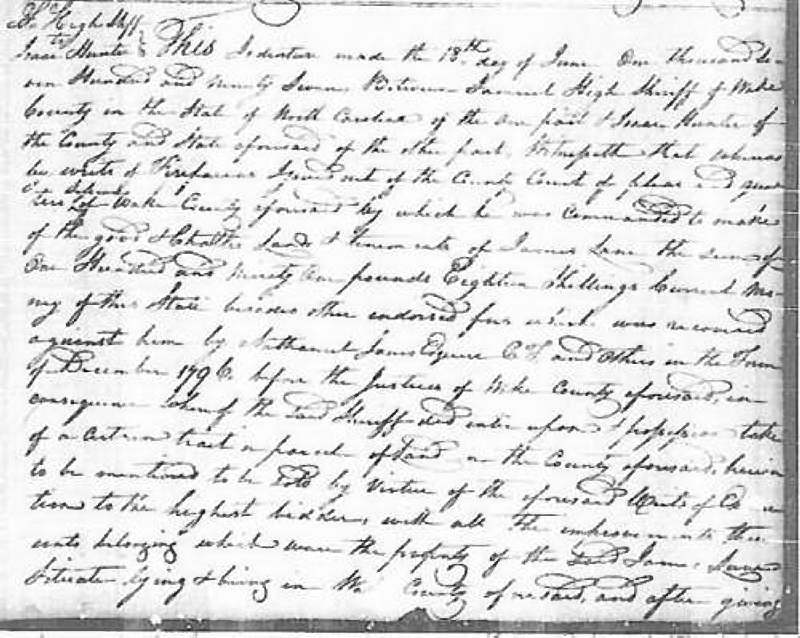 High Shff
to
Isaac Hunter } This Indenture made the 18th day of June One thousand Se-
ven Hundred and ninety Seven Between Samuel High Sheriff of Wake
County in the State of North Carolina of the one part & Isaac Hunter of
the County and State aforesaid of the other part, Witnesseth that whereas
by writs of Firefacias Issued out of the County Court of pleas and quar
ters of Wake County aforesaid by which he was commanded to make
of the goods & Chattles Lands & Tenements of James Lane the sum of
One Hundred and Ninety One pounds Eighteen Shillings Current Mo-
ny of this State besides other endorsed fees which was recovered
against him by Nathaniel Jones Esquire C. T. and Others in the Term
of December 1796. before the Justices of Wake County aforesaid, in
consequence whereof the said Sheriff did enter upon & possession take
of a certain tract or parcel of Land in the County aforesaid, herein
to be mentioned to be Sold by Virtue of the aforesaid Writs of Ex
tion to the highest bidder, with all the improvements there
unto belonging which were the property of the said James Lane
Situate lying & being in County aforesaid, and after giving